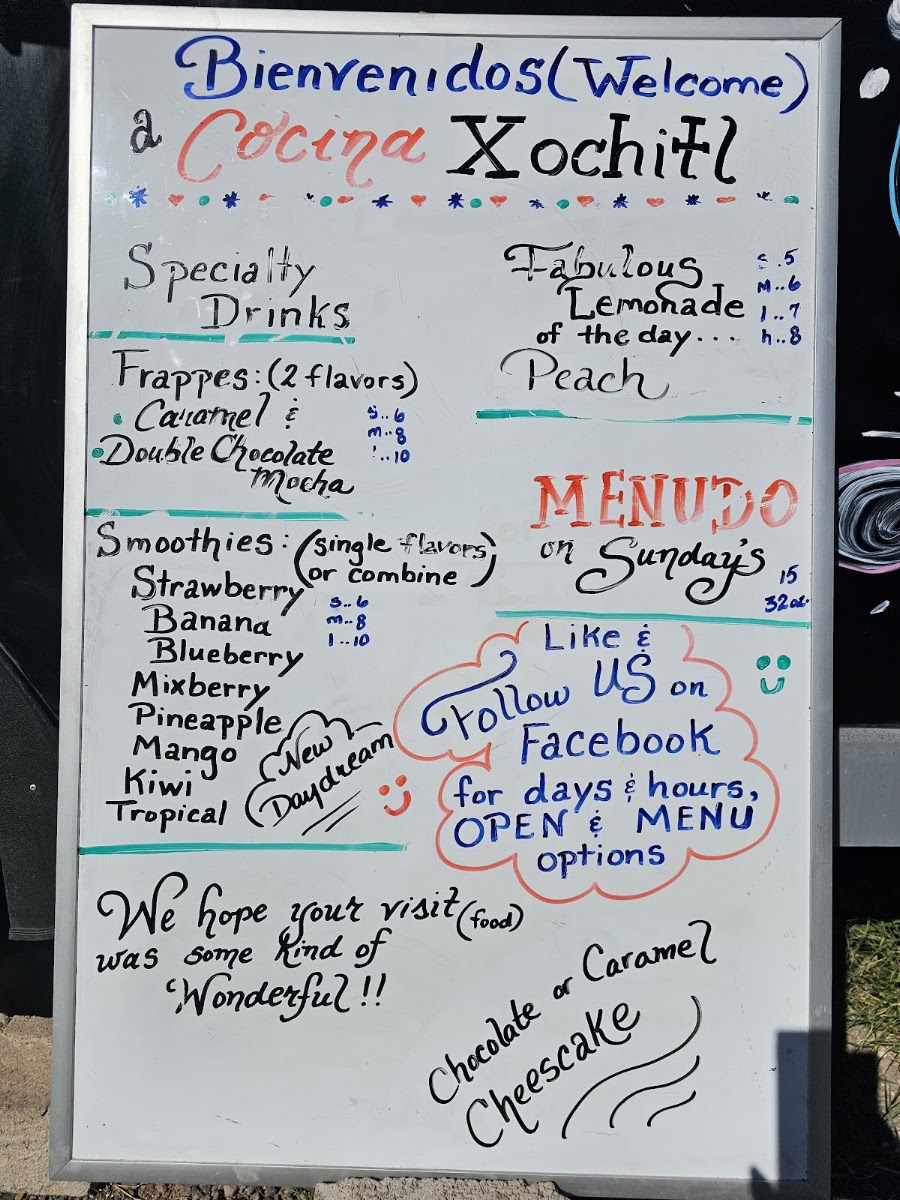 Bienvenidos (Welcome)
a Cocina Xochitl
Specialty
Drinks
Frappes: (2 flavors)
• Caramel &
• Double Chocolate
Mocha
s..6
m..8
l..10
Smoothies: (single flavors)
(or combine)
Strawberry
Banana
Blueberry
Mixberry
Pineapple
Mango
Kiwi
Tropical
s..6
m..8
l..10
New
Daydream
Fabulous
Lemonade
of the day...
Peach
s..5
M..6
l..7
h..8
MENUDO
on Sunday's
15
32oz.
Like &
Follow US on
Facebook
for days & hours,
OPEN & MENU
options
We hope your visit (food)
was some kind of
Wonderful!!
Chocolate or Caramel
Cheescake